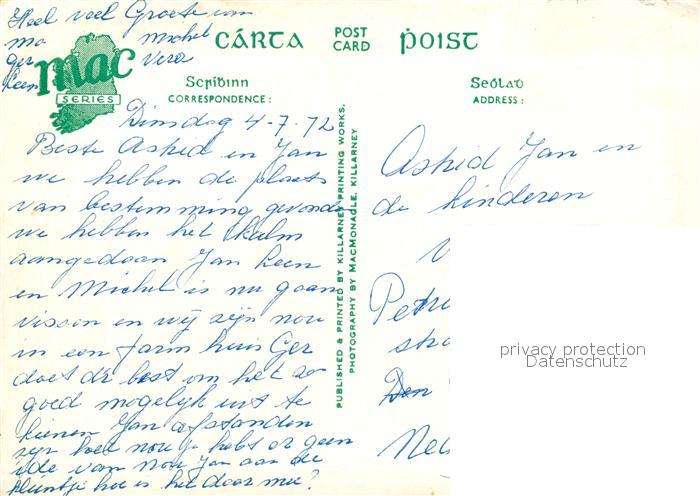 Heel veel Groete van
ma michel
ger Vera
Leen
mac
SERIES
CÁRTA POST CARD ṖOIST
Scríbinn
CORRESPONDENCE :
Seólad
ADDRESS :
Dinsdag 4-7-72
Beste Astrid en Jan
we hebben de plaats
van bestemming gevonde
we hebben het kalm
aangedaan Jan Leen
en Michel is nu gaan
vissen en wij zijn nou
in een farm huis Ger
doet dr best om het zo
goed mogelijk uit te
kienen Jan afstanden
zijn hoel nou je hebt er geen
idee van nou Jan aan de
kleintje hoe is het daar mee?
PUBLISHED & PRINTED BY KILLARNEY PRINTING WORKS,
PHOTOGRAPHY BY MACMONAGLE, KILLARNEY
Astrid Jan en
de kinderen
Petru
stra
Den
Ned
privacy protection
Datenschutz